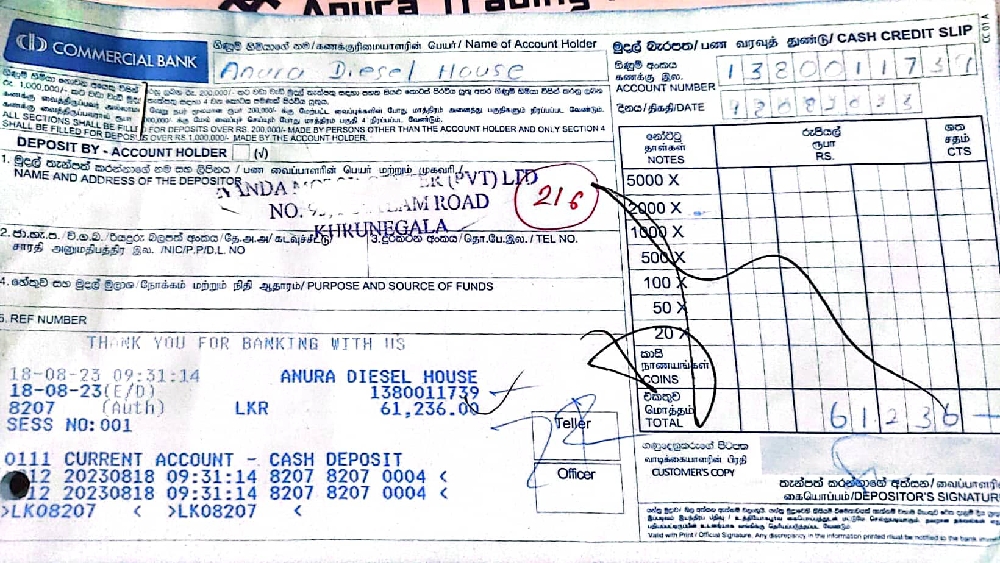 Anura Trading
COMMERCIAL BANK
ගිණුම් හිමියාගේ නම/கணக்குரிமையாளரின் பெயர்/ Name of Account Holder
Anura Diesel House
මුදල් බැරපත/பண வரவுத் துண்டு/ CASH CREDIT SLIP
ගිණුම් අංකය
கணக்கு இல.
ACCOUNT NUMBER
1380011739
දිනය/திகதி/DATE
ALL SECTIONS SHALL BE FILL
SHALL BE FILLED FOR DEPOSITS OVER RS. 1,000,000/- MADE BY THE ACCOUNT HOLDER.
FOR DEPOSITS OVER RS. 200,000/- MADE BY PERSONS OTHER THAN THE ACCOUNT HOLDER AND ONLY SECTION 4
DEPOSIT BY - ACCOUNT HOLDER (√)
1. මුදල් තැන්පත් කරන්නාගේ නම සහ ලිපිනය / பண வைப்பாளரின் பெயர் மற்றும் முகவரி/
NAME AND ADDRESS OF THE DEPOSITOR
(PVT) LTD
ROAD
KURUNEGALA
216
සාரதி அனுமதிபத்திர இல. /NIC/P.P/D.L. NO
3. දුරකථන අංකය/தொ.பே.இல./ TEL NO.
4. හේතුව සහ මුදල් මූලාශ්‍ර/நோக்கம் மற்றும் நிதி ஆதாரம்/ PURPOSE AND SOURCE OF FUNDS
5. REF NUMBER
THANK YOU FOR BANKING WITH US
18-08-23 09:31:14 ANURA DIESEL HOUSE
18-08-23(E/D) 1380011739
8207 (Auth) LKR 61,236.00
SESS NO:001
0111 CURRENT ACCOUNT - CASH DEPOSIT
12 20230818 09:31:14 8207 8207 0004 <
12 20230818 09:31:14 8207 8207 0004 <
>LK08207 < >LK08207 <
Teller
Officer
නෝට්ටු
தாள்கள்
NOTES
රුපියල්
ரூபா
RS.
ශත
சதம்
CTS
5000 X
2000 X
1000 X
500 X
100 X
50 X
20 X
කාසි
நாணயங்கள்
COINS
එකතුව
மொத்தம்
TOTAL
61236 -
ගනුදෙනුකරුගේ පිටපත
வாடிக்கையாளரின் பிரதி
CUSTOMER'S COPY
තැන්පත් කරන්නාගේ අත්සන/வைப்பாளரின்
கையொப்பம்/DEPOSITOR'S SIGNATURE
Valid with Print / Official Signature. Any discrepancy in the information printed must be notified to the bank